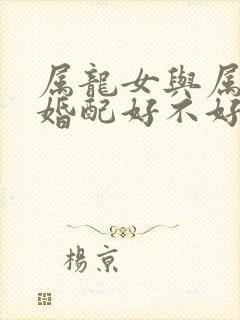 属龍女與属
婚配好不好
楊京